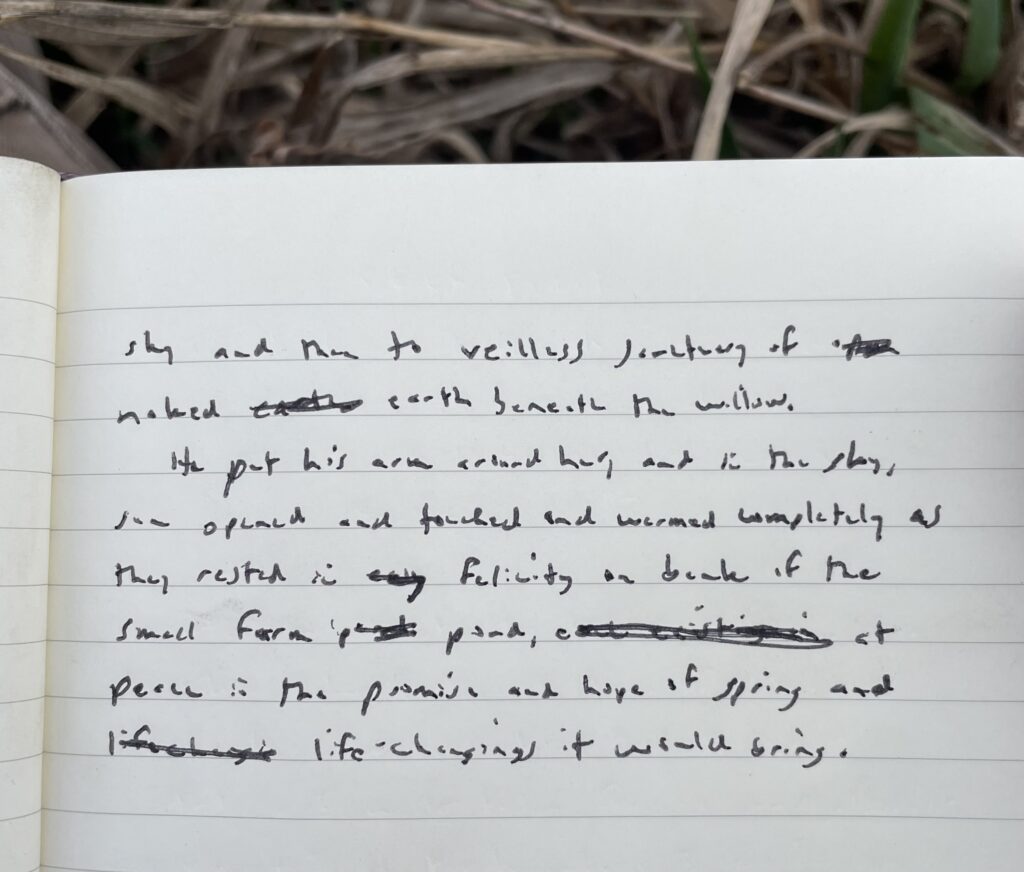 sky and then to veilless sanctuary of
naked earth beneath the willow.
He put his arm around her, and in the sky,
sun opened and touched and warmed completely as
they rested in felicity on bank of the
small farm pond, at
peace in the promise and hope of spring and
life-changings it would bring.